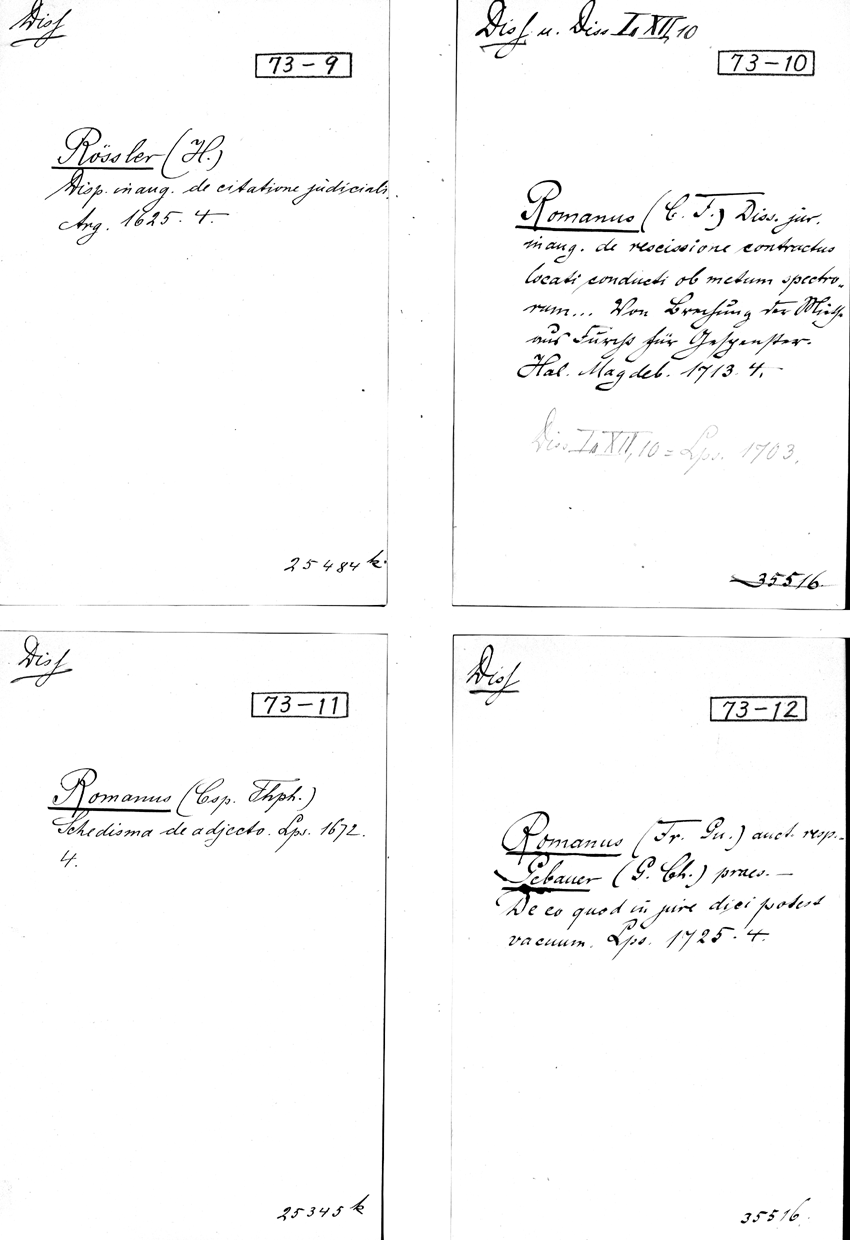 Diss
73-9
Rössler (H.)
Disp. inaug. de citatione judiciali.
Arg. 1625. 4.
25484 k.
Diss u. Diss I, XII, 10
73-10
Romanus (C. F.) Diss. jur.
inaug. de rescissione contractus
locati conducti ob metum spectro-
rum... Von Brechung der Mieth
aus Furcht für Gespenster.
Hal. Magdeb. 1713. 4.
Diss I, XII, 10 = Lps. 1703.
35516.
Diss
73-11
Romanus (Csp. Thph.)
Schedisma de adjecto. Lps. 1672.
4.
25345 k
Diss
73-12
Romanus (Fr. Gu.) auct. resp.-
Gebauer (G. Ch.) praes. —
De eo quod in jure dici potest
vacuum. Lps. 1725. 4.
35516.